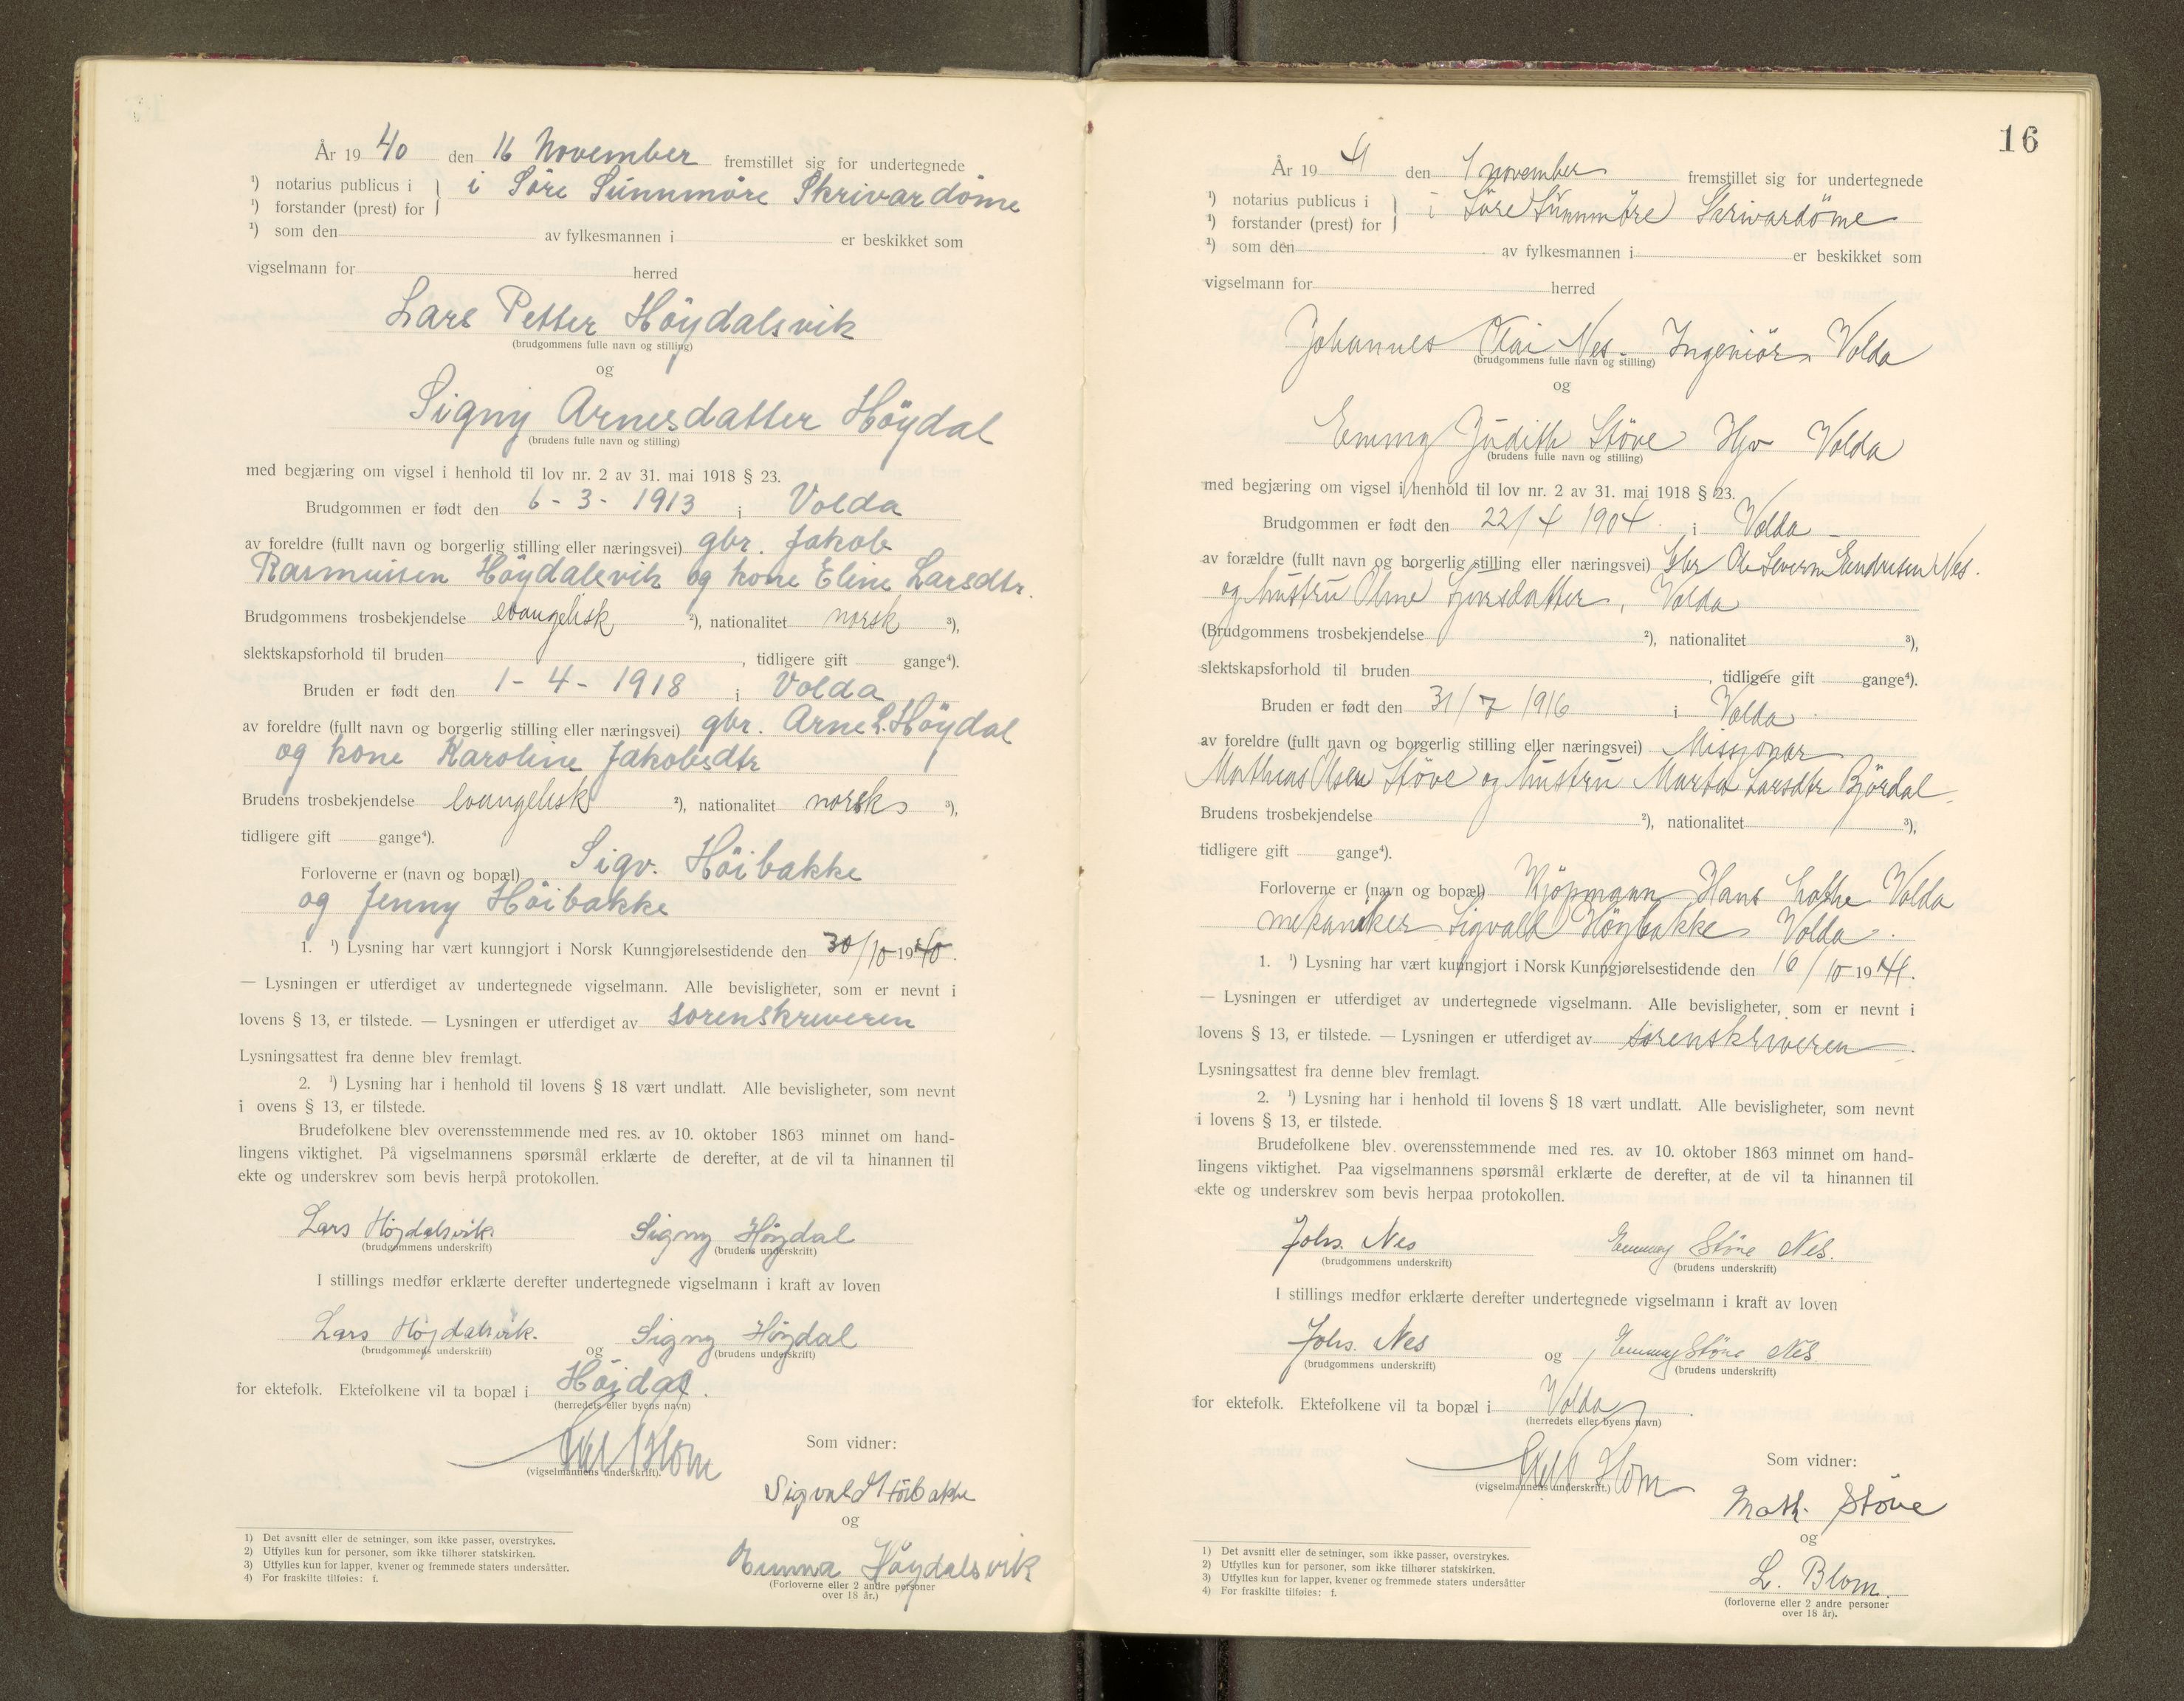 År 19 40 den 16 November fremstillet sig for undertegnede
¹) notarius publicus i
¹) forstander (prest) for
i Söre Sünnmöre Skrivardöme
¹) som den av fylkesmannen i er beskikket som
vigselmann for herred
Lars Petter Höydalsvik
(brudgommens fulle navn og stilling)
og
Signy Arnesdatter Höydal
(brudens fulle navn og stilling)
med begjæring om vigsel i henhold til lov nr. 2 av 31. mai 1918 § 23.
Brudgommen er født den 6 - 3 - 1913 i Volda
av foreldre (fullt navn og borgerlig stilling eller næringsvei) gbr. Jakob
Rasmussen Höydalsvik og kone Eline Larsdtr.
Brudgommens trosbekjendelse evangelisk ²), nationalitet norsk ³),
slektskapsforhold til bruden , tidligere gift gange⁴).
Bruden er født den 1 - 4 - 1918 i Volda
av foreldre (fullt navn og borgerlig stilling eller næringsvei) gbr. Arne L. Höydal
og kone Karoline Jakobsdtr
Brudens trosbekjendelse evangelisk ²), nationalitet norsk ³),
tidligere gift gange⁴).
Forloverne er (navn og bopæl) Sigv. Höibakke
og Jenny Höibakke
1. ¹) Lysning har vært kunngjort i Norsk Kunngjørelsestidende den 30/10 1940.
— Lysningen er utferdiget av undertegnede vigselmann. Alle bevisligheter, som er nevnt i
lovens § 13, er tilstede. — Lysningen er utferdiget av sorenskriveren
Lysningsattest fra denne blev fremlagt.
2. ¹) Lysning har i henhold til lovens § 18 vært undlatt. Alle bevisligheter, som nevnt
i ovens § 13, er tilstede.
Brudefolkene blev overensstemmende med res. av 10. oktober 1863 minnet om hand-
lingens viktighet. På vigselmannens spørsmål erklærte de derefter, at de vil ta hinannen til
ekte og underskrev som bevis herpå protokollen.
Lars Höydalsvik. Signy Höydal
(brudgommens underskrift) (brudens underskrift)
I stillings medfør erklærte derefter undertegnede vigselmann i kraft av loven
Lars Höydalsvik. og Signy Höydal
(brudgommens underskrift) (brudens underskrift)
for ektefolk. Ektefolkene vil ta bopæl i Höidal.
(herredets eller byens navn)
Blom
(vigselmannens underskrift).
Som vidner:
Sigvald Höibakke
og
Gunna Höydalsvik
(Forloverne eller 2 andre personer
over 18 år.)
1) Det avsnitt eller de setninger, som ikke passer, overstrykes.
2) Utfylles kun for personer, som ikke tilhører statskirken.
3) Utfylles kun for lapper, kvener og fremmede staters undersåtter.
4) For fraskilte tilføies: f.
16
År 19 41 den 1 november fremstillet sig for undertegnede
¹) notarius publicus i
¹) forstander (prest) for
i Söre Sünnmöre Skrivardöme
¹) som den av fylkesmannen i er beskikket som
vigselmann for herred
Johannes Olai Nes. Ingeniör, Volda
(brudgommens fulle navn og stilling)
og
Emmy Judith Stöve Hjv Volda
(brudens fulle navn og stilling)
med begjæring om vigsel i henhold til lov nr. 2 av 31. mai 1918 § 23.
Brudgommen er født den 22/4 1904. i Volda
av forældre (fullt navn og borgerlig stilling eller næringsvei) Gbr Ole Severin Endresen Nes.
og hustru Oline Sjursdatter, Volda
(Brudgommens trosbekjendelse ²), nationalitet ³),
slektskapsforhold til bruden , tidligere gift gange⁴).
Bruden er født den 31/7 1916 i Volda
av foreldre (fullt navn og borgerlig stilling eller næringsvei) Missjonær
Mathias Olsen Stöve og hustru Marta Larsdtr Björdal
Brudens trosbekjendelse ²), nationalitet ³),
tidligere gift gange⁴).
Forloverne er (navn og bopæl) Kjöpmann Hans Volda
mekaniker Sigvald Höybakke Volda.
1. ¹) Lysning har vært kunngjort i Norsk Kunngjørelsestidende den 16/10 1941.
— Lysningen er utferdiget av undertegnede vigselmann. Alle bevisligheter, som er nevnt i
lovens § 13, er tilstede. — Lysningen er utferdiget av sorenskriveren
Lysningsattest fra denne blev fremlagt.
2. ¹) Lysning har i henhold til lovens § 18 vært undlatt. Alle bevisligheter, som nevnt
i lovens § 13, er tilstede.
Brudefolkene blev overensstemmende med res. av 10. oktober 1863 minnet om hand-
lingens viktighet. Paa vigselmannens spørsmål erklærte de derefter, at de vil ta hinannen til
ekte og underskrev som bevis herpaa protokollen.
Johs. Nes Emmy Stöve Nes.
(brudgommens underskrift) (brudens underskrift)
I stillings medfør erklærte derefter undertegnede vigselmann i kraft av loven
Johs. Nes og Emmy Stöve Nes
(brudgommens underskrift) (brudens underskrift)
for ektefolk. Ektefolkene vil ta bopæl i Volda
(herredets eller byens navn)
Blom
(vigselmannens underskrift.)
Som vidner:
Math. Stöve
og
L. Blom.
(forloverne eller 2 andre personer
over 18 år).
1) Det avsnitt eller de setninger, som ikke passer, overstrykes.
2) Utfylles kun for personer, som ikke tilhører statskirken.
3) Utfylles kun for lapper, kvener og fremmede staters undersåtter
4) For fraskilte tilføies: f.